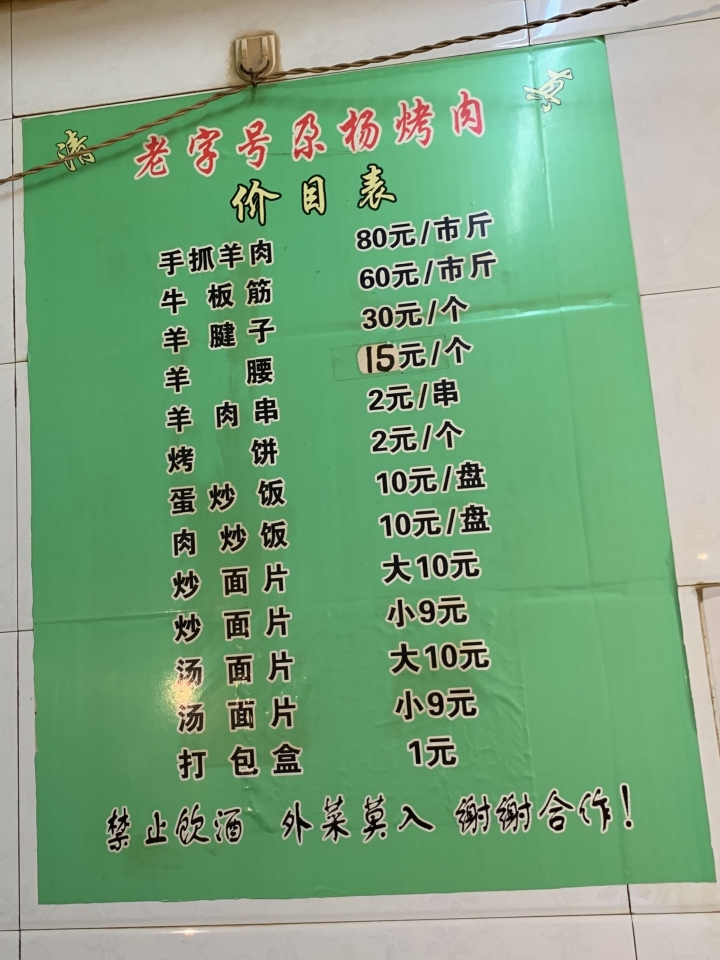 清 真
老字号尕杨烤肉
价目表
手抓羊肉 80元/市斤
牛板筋 60元/市斤
羊腱子 30元/个
羊腰 15元/个
羊肉串 2元/串
烤饼 2元/个
蛋炒饭 10元/盘
肉炒饭 10元/盘
炒面片 大10元
炒面片 小9元
汤面片 大10元
汤面片 小9元
打包盒 1元
禁止饮酒 外菜莫入 谢谢合作!